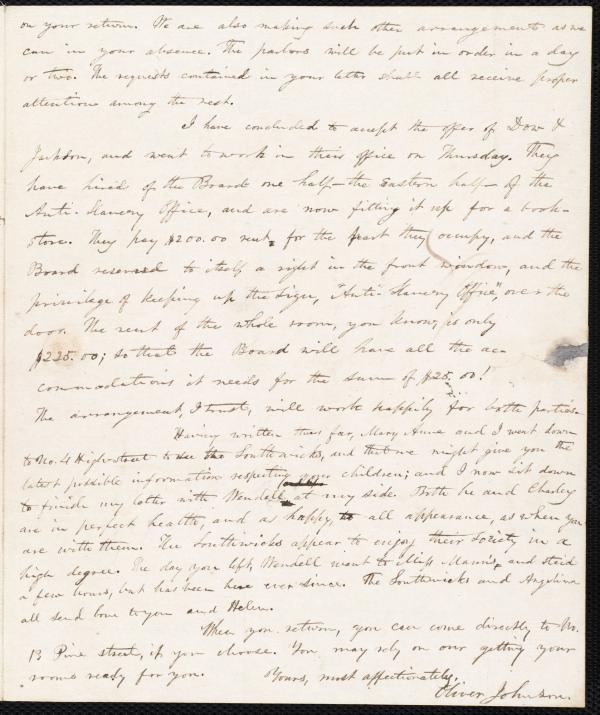 on your return. We are also making such other arrangements as we
can in your absence. The parlors will be put in order in a day
or two. The requests contained in your letter shall all receive proper
attention among the rest.
I have concluded to accept the offer of Dow &
Jackson, and went to work in their office on Thursday. They
have hired of the Board one half—the Eastern half—of the
Anti-Slavery Office, and are now fitting it up for a book-
store. They pay $200.00 rent, for the part they occupy, and the
Board reserved to itself a right in the front window, and the
privilege of keeping up the sign, "Anti-Slavery Office", over the
door. The rent of the whole room, you know, is only
$225.00; so that the Board will have all the ac-
commodations it needs for the sum of $25.00!
The arrangement, I trust, will work happily for both parties.
Having written thus far, Mary Anne and I went down
to No. 4 High-street to see the Southwicks, and that we might give you the
latest possible information respecting your children; and I now sit down
to finish my letter with Wendell at my side. Both he and Charley
are in perfect health, and as happy, to all appearance, as when you
are with them. The Southwicks appear to enjoy their society in a
high degree. The day you left, Wendell went to Miss Mann's, and staid
a few hours, but has been here ever since. The Southwicks and Angelina
all send love to you and Helen.
When you return, you can come directly to No.
13 Pine street, if you choose. You may rely on our getting your
rooms ready for you. Yours, most affectionately,
Oliver Johnson.